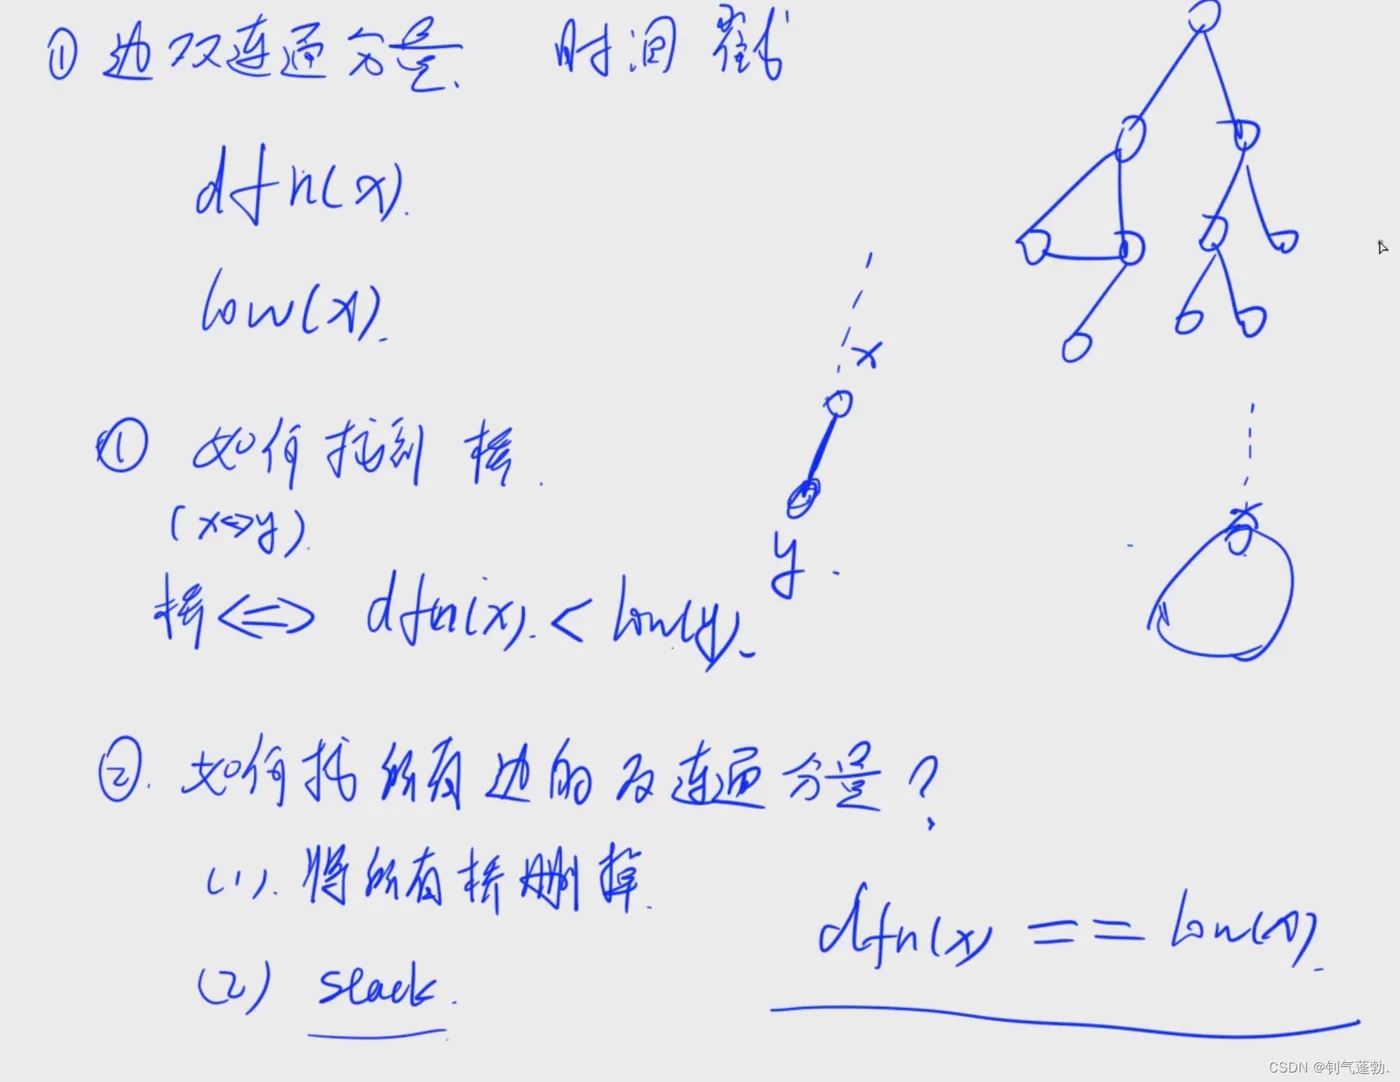 ① 边双连通分量. 时间戳
dfn(x).
low(x).
x
① 如何找到桥.
(x⇔y).
y.
桥⇔ dfn(x). < low(y).
x
②. 如何找所有边的双连通分量?
(1). 将所有桥删掉.
dfn(x) == low(x).
(2) stack.
CSDN @钊气蓬勃.